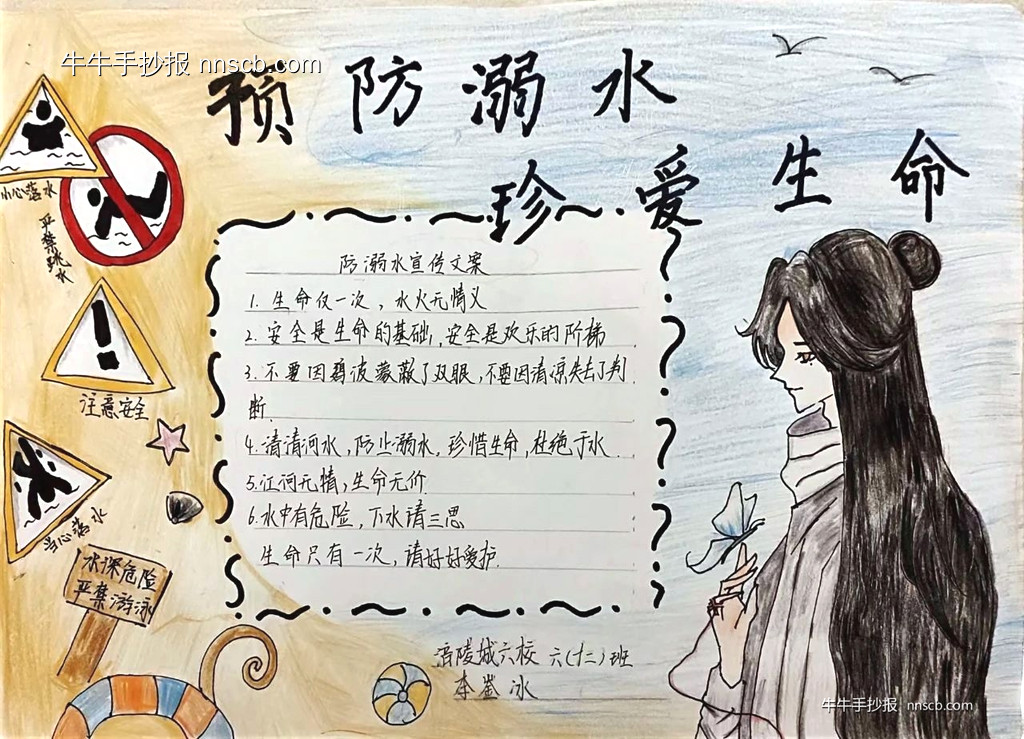 牛牛手抄报 nnscb.com
预防溺水
珍爱生命
小心落水
严禁跳水
注意安全
当心落水
水深危险
严禁游泳
防溺水宣传文案
1. 生命仅一次，水火无情义
2. 安全是生命的基础，安全是欢乐的阶梯
3. 不要因碧波蒙蔽了双眼，不要因清凉失去了判
断.
4. 清清河水，防止溺水，珍惜生命，杜绝于水.
5. 江河无情，生命无价
6. 水中有危险，下水请三思
生命只有一次，请好好爱护.
涪陵城六校 六(十二)班
李 冰
牛牛手抄报 nnscb.com